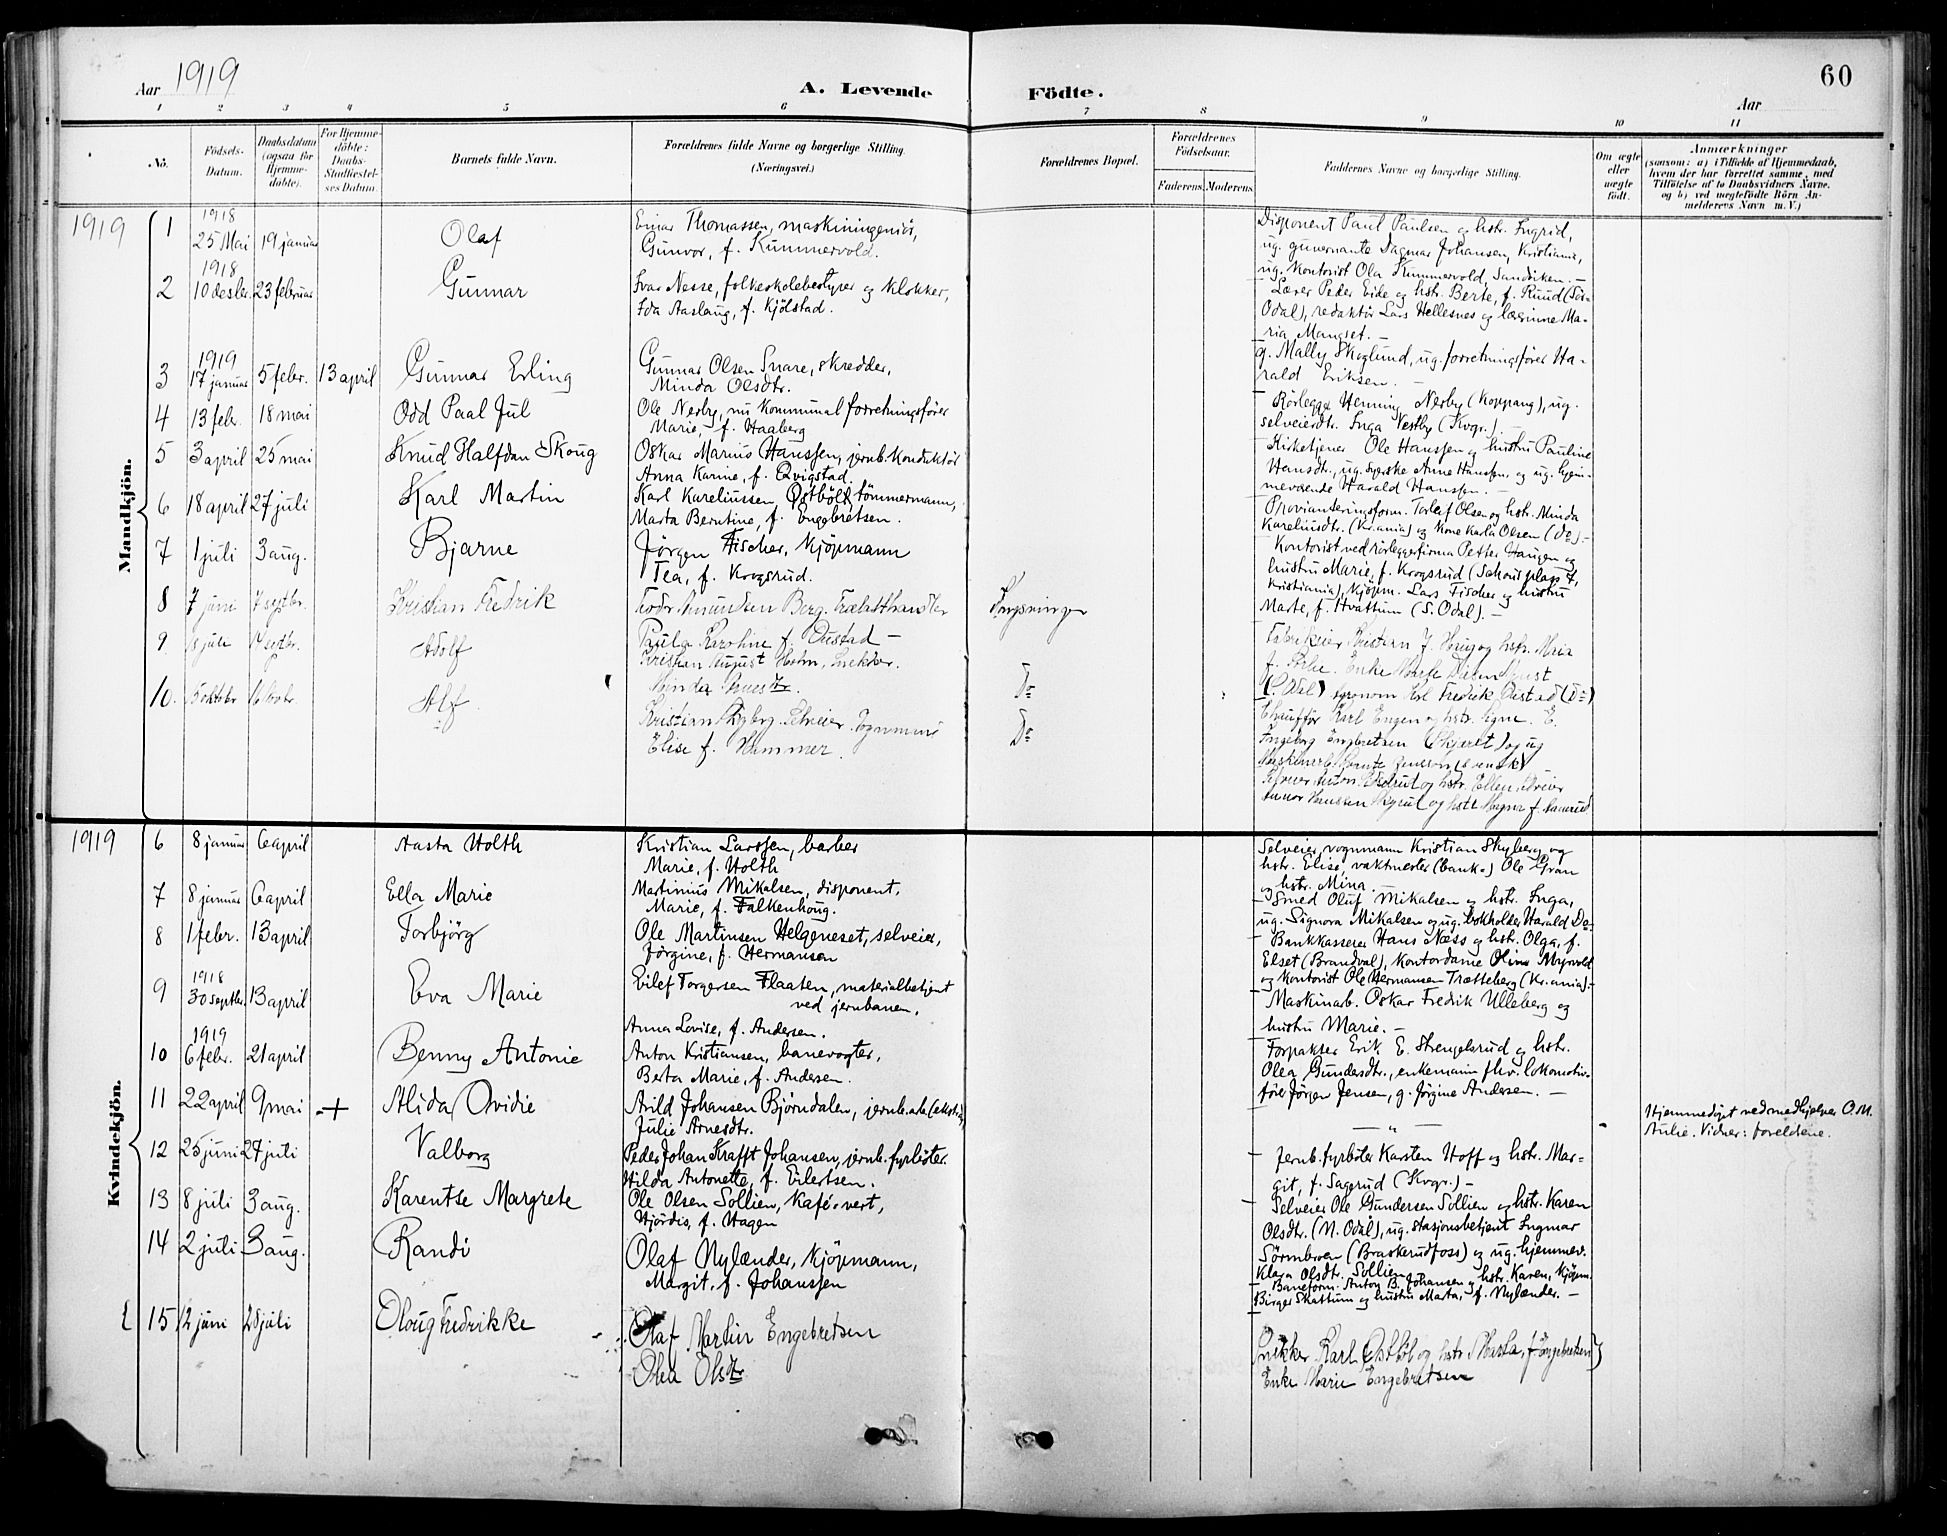 60
Aar 1919
A. Levende Födte.
Aar
1 2 3 4 5 6 7 8 9 10 11
Nô.
Födsels-Datum.
Daabsdatum (ogsaa för Hjemme-döbte).
For Hjemme-döbte: Daabs-Stadfæstel-ses Datum.
Barnets fulde Navn.
Forældrenes fulde Navne og borgerlige Stilling.
(Næringsvei.)
Forældrenes Bopæl.
Forældrenes Födselsaar.
Faderens. Moderens.
Faddernes Navne og borgerlige Stilling.
Om ægte eller uægte födt.
Anmærkninger
(saasom: a) i Tilfælde af Hjemmedaab,
hvem der har forrettet samme, med
Tilföielse af to Daabsvidners Navne.
og b) ved uægtefödte Börn An-
melderens Navn m. V.)
Mandkjön.
1919
1 1918 25 Mai 19 januar Olaf
Einar Thomassen, maskiningeniör,
Gunvor, f. Kummervold.
Disponent Paul Paulsen og hstr. Ingrid,
ug. guvernante Dagmar Johansen, Kristiania,
ug. kontorist Ola Kummervold, Sandviken. —
2 1918 10 desbr. 23 februar Gunnar
Ivar Nesse, folkeskolebestyrer og klokker,
Ida Aaslaug, f. Kjölstad.
Lærer Peder Eide og hstr. Berte, f. Ruud (Sör-
Odal), redaktör Lars Hellesnes og lærerinne Ma-
ria Mangset. —
3 1919 17 januar 5 febr. 13 april Gunnar Erling
Gunnar Olsen Snare, skredder,
Minda Olsdtr.
g. Mally Skoglund, ug. forretningsförer Ha-
rald Eriksen. —
4 13 febr. 18 mai Odd Paal Jul
Ole Nerby, nu kommunal forretningsförer
Marie, f. Haaberg
Rörlegger Henning Nerby (Koppang), ug.
selveierdtr. Inga Vestby (Kvgr.). —
5 3 april 25 mai Knud Halfdan Skoug
Oskar Marius Hanssen, jernb. konduktör
Anna Karine, f. Qvigstad.
Kirketjener Ole Hanssen og hustru Pauline
Hansdtr., ug. syerske Anne Hanssen, og ug. hjem-
meværende Harald Hanssen. —
6 18 april 27 juli Karl Martin
Karl Kareliussen Östböl, tömmermann,
Marta Berntine, f. Engebretsen.
Provianteringsform. Torlef Olsen og hstr. Minda
Kareliusdtr. (Kr.ania) og kone Karla Olsen (do) —
7 1 juli 3 aug. Bjarne
Jörgen Fischer, kjöpmann
Tea, f. Krogsrud.
Kontorist ved rörleggerfirma Petter Haugen og
hustru Marie, f. Krogsrud (Schousplass 7,
Kristiania), kjöpm. Lars Fischer og hustru
Marte, f. Hvattum (S. Odal). —
8 7 juni 7 septbr. Kristian Fredrik
Amundsen Berg. Trælasthandler
Paula Karoline f. Oustad —
9 juli 14 septbr. Adolf
Kristian August Holm, Snekker.
Do
f. Enke
(S. Odal) Agronom Karl Fredrik Oustad (do)
10. 5 oktobr Alf
Kristian Skyberg. Selveier. Vognmann
Elise f. Hammer.
Do
Chauffør Karl Engen og hstr. Signe. E.
Ingeborg Engbretsen (Skjeret) og ug
Selveier Anton og hstr. Ellen,
og hstr. Magna f.
Kvindekjön.
1919
6 8 januar 6 april Aasta Holth
Kristian Larssen, barber
Marie, f. Holth
Selveier, vognmann Kristian Skyberg og
hstr. Elise, vaktmester (bank-) Ole Gran
og hstr. Mina. —
7 8 januar 6 april Ella Marie
Martinius Mikalsen, disponent,
Marie, f. Falkenhoug.
Smed Oluf Mikalsen og hstr. Inga,
ug. Signora Mikalsen og ug. bokholder Harald Do-
8 1 febr. 13 april Torbjörg
Ole Martinsen Helgeneset, selveier,
Jörgine, f. Hermansen
Bankkasserer Hans Næss og hstr. Olga, f.
Elset (Brandval), kontordame Olivia Myrvold
og kontorist Ole Hermansen Trætteberg (Kr.ania). —
9 1918 30 septbr. 13 april Eva Marie
Eilef Torgersen Flaaten, materialbetjent
ved jernbanen,
Anna Lovise, f. Andersen.
Maskinarb. Oskar Fredrik Ulleberg og
hustru Marie. —
10 1919 6 febr. 21 april Benny Antonie
Anton Kristiansen, banevogter,
Berta Marie, f. Andersen.
Forpakter Erik E. Strengelsrud og hstr.
Olea Gundersdtr., enkemann fhv. lokomotiv-
förer Jörgen Jensen, g. Jörgine Andersen. —
11 22 april 9 mai + Alida Ovidie
Arild Johansen Björndalen, jernb.arb. (ekstra),
Julie Arnesdtr.
— " —
Hjemmedöpt ved medhjelper O. M.
Aulie. Vidner: foreldrene.
12 25 juni 27 juli Valborg
Peder Johan Krafft Johansen, jernb. fyrböter.
Hilda Antonette, f. Eilertsen.
Jernb. fyrböter Karsten Hoff og hstr. Mar-
git, f. Sagerud (Kvgr.) —
13 8 juli 3 aug. Karentse Margrete
Ole Olsen Sollien, kafé-vert,
Hjördis, f. Hagen
Selveier Ole Gundersen Sollien og hstr. Karen
Olsdtr. (N. Odal), ug. stasjonsbetjent Ingmar
Sörmbroen (Braskerudfoss) og ug. hjemmev.
Klara Olsdtr. Sollien
14 2 juli 3 aug. Randi
Olaf Nylænder, kjöpmann,
Margit, f. Johanssen
Baneform. Anton B. Johansen og hstr. Karen, kjöpm.
Birger Skattum og hustru Marta, f. Nylænder. —
15 12 juni 28 juli Oloug Fredrikke
Olaf Martin Engebretsen
Olea Olsdtr
Snekker Karl Östböl og hstr Marta, f. Engebretsen
Enke Marie Engebretsen